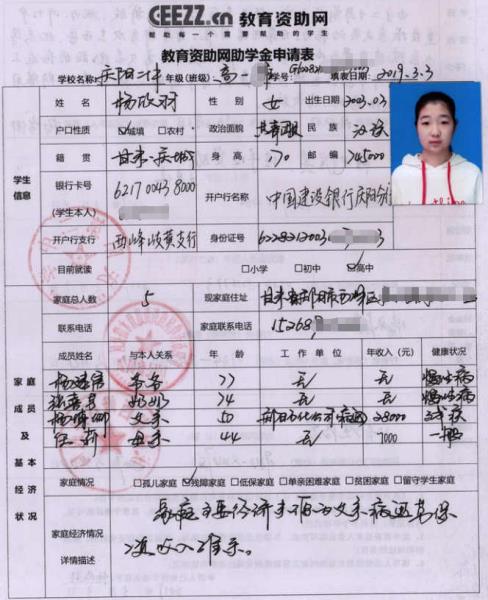 GEEZZ.cn 教育资助网
帮助每一个需要帮助的学生
教育资助网助学金申请表
学校名称: 庆阳一中 年级(班级): 高一 学号: 填表日期: 2019.3.3
学生信息
姓 名 杨欣羽 性 别 女 出生日期 2003.03
户口性质 城填 农村 政治面貌 共青团员 民 族 汉族
籍 贯 甘肃 庆阳 身 高 170 邮 编 745000
银行卡号 (学生本人) 6217 0043 8000 开户行名称 中国建设银行庆阳分行
开户行支行 西峰岐黄支行 身份证号
目前就读 小学 初中 高中
家庭总人数 5 现家庭住址 甘肃省庆阳市西峰区
联系电话 家庭联系电话 152689
家庭成员及基本经济状况
成员姓名 与本人关系 年 龄 工 作 单 位 年收入 (元) 健康状况
爷爷 77 无 无 慢性病
奶奶 74 无 无 慢性病
父亲 50 28000 残疾
母亲 44 无 7000 一般
家庭情况 孤儿家庭 残障家庭 低保家庭 单亲困难家庭 贫困家庭 留守学生家庭
家庭经济情况详情描述 家庭主要经济来源为父亲
收入维系。